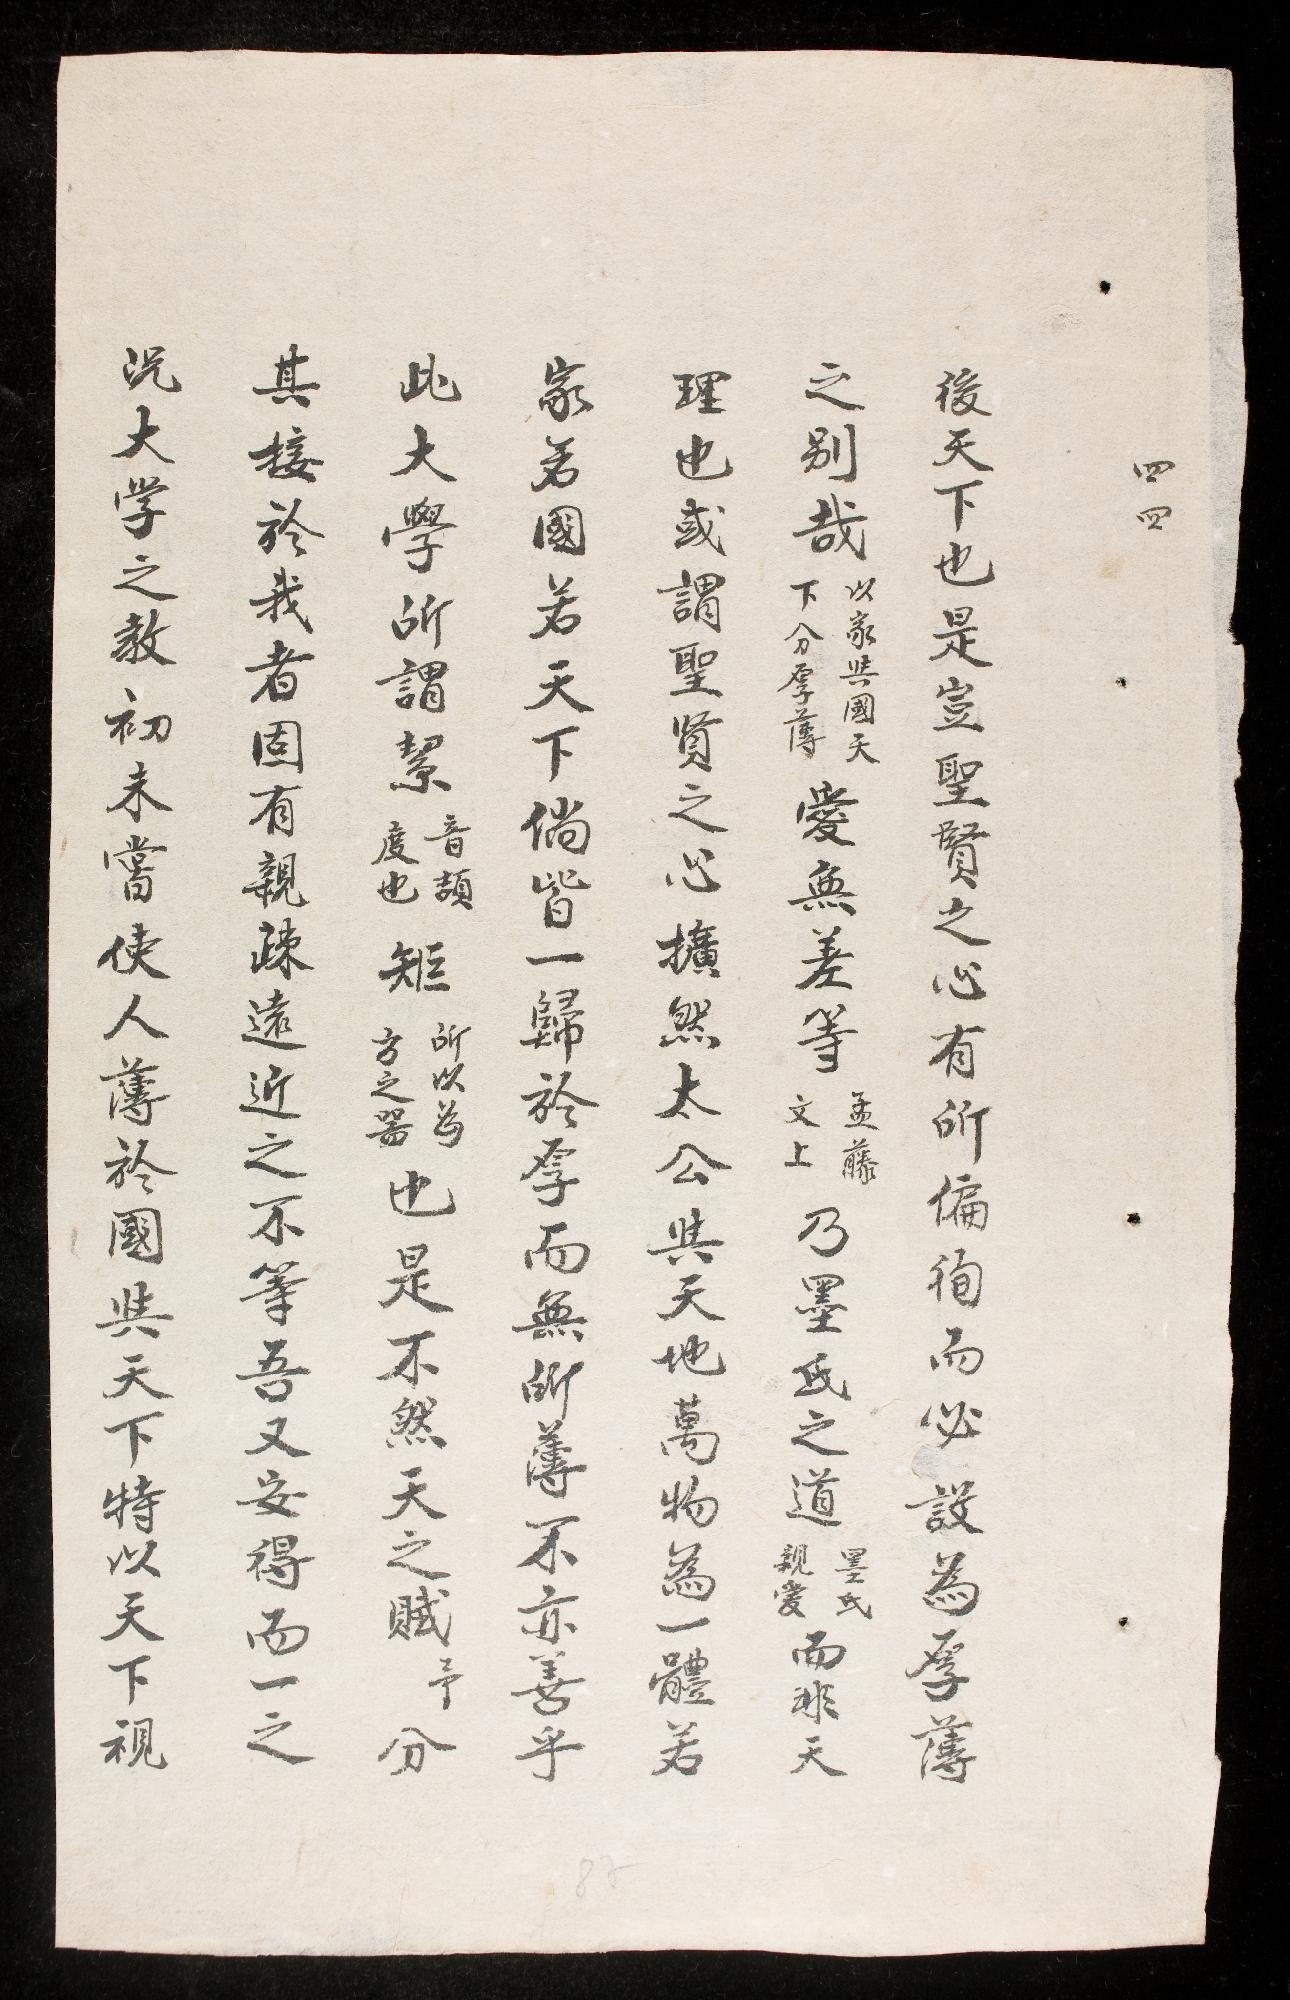 四四
後天下也是豈聖賢之心有所偏徇而必設為厚薄
之別哉以家與国天下分厚薄愛無差等孟藤文上乃墨氏之道墨氏親愛而非天
理也或謂聖賢之心擴然太公與天地萬物為一體若
家若國若天下倘皆一歸於厚而無所薄不亦善乎
此大學所謂絜音頡度也矩所以為方之器也是不然天之賦予分
其接於我者固有親疎遠近之不等吾又安得而一之
況大学之教初未嘗使人薄於國與天下特以天下視
87